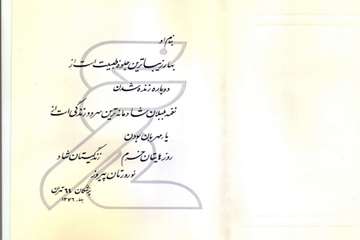 بنام او
بهار زیباترین جلوه طبیعت است از
دوباره زنده شدن
نغمه بلبلان شادمانه‌ترین سرود زندگی است از
یار مهربان بودن
روزهایتان خرم زندگیتان شاد
نوروزتان پیروز
پزشکان ۶۷ تهران
۱۳۷۶